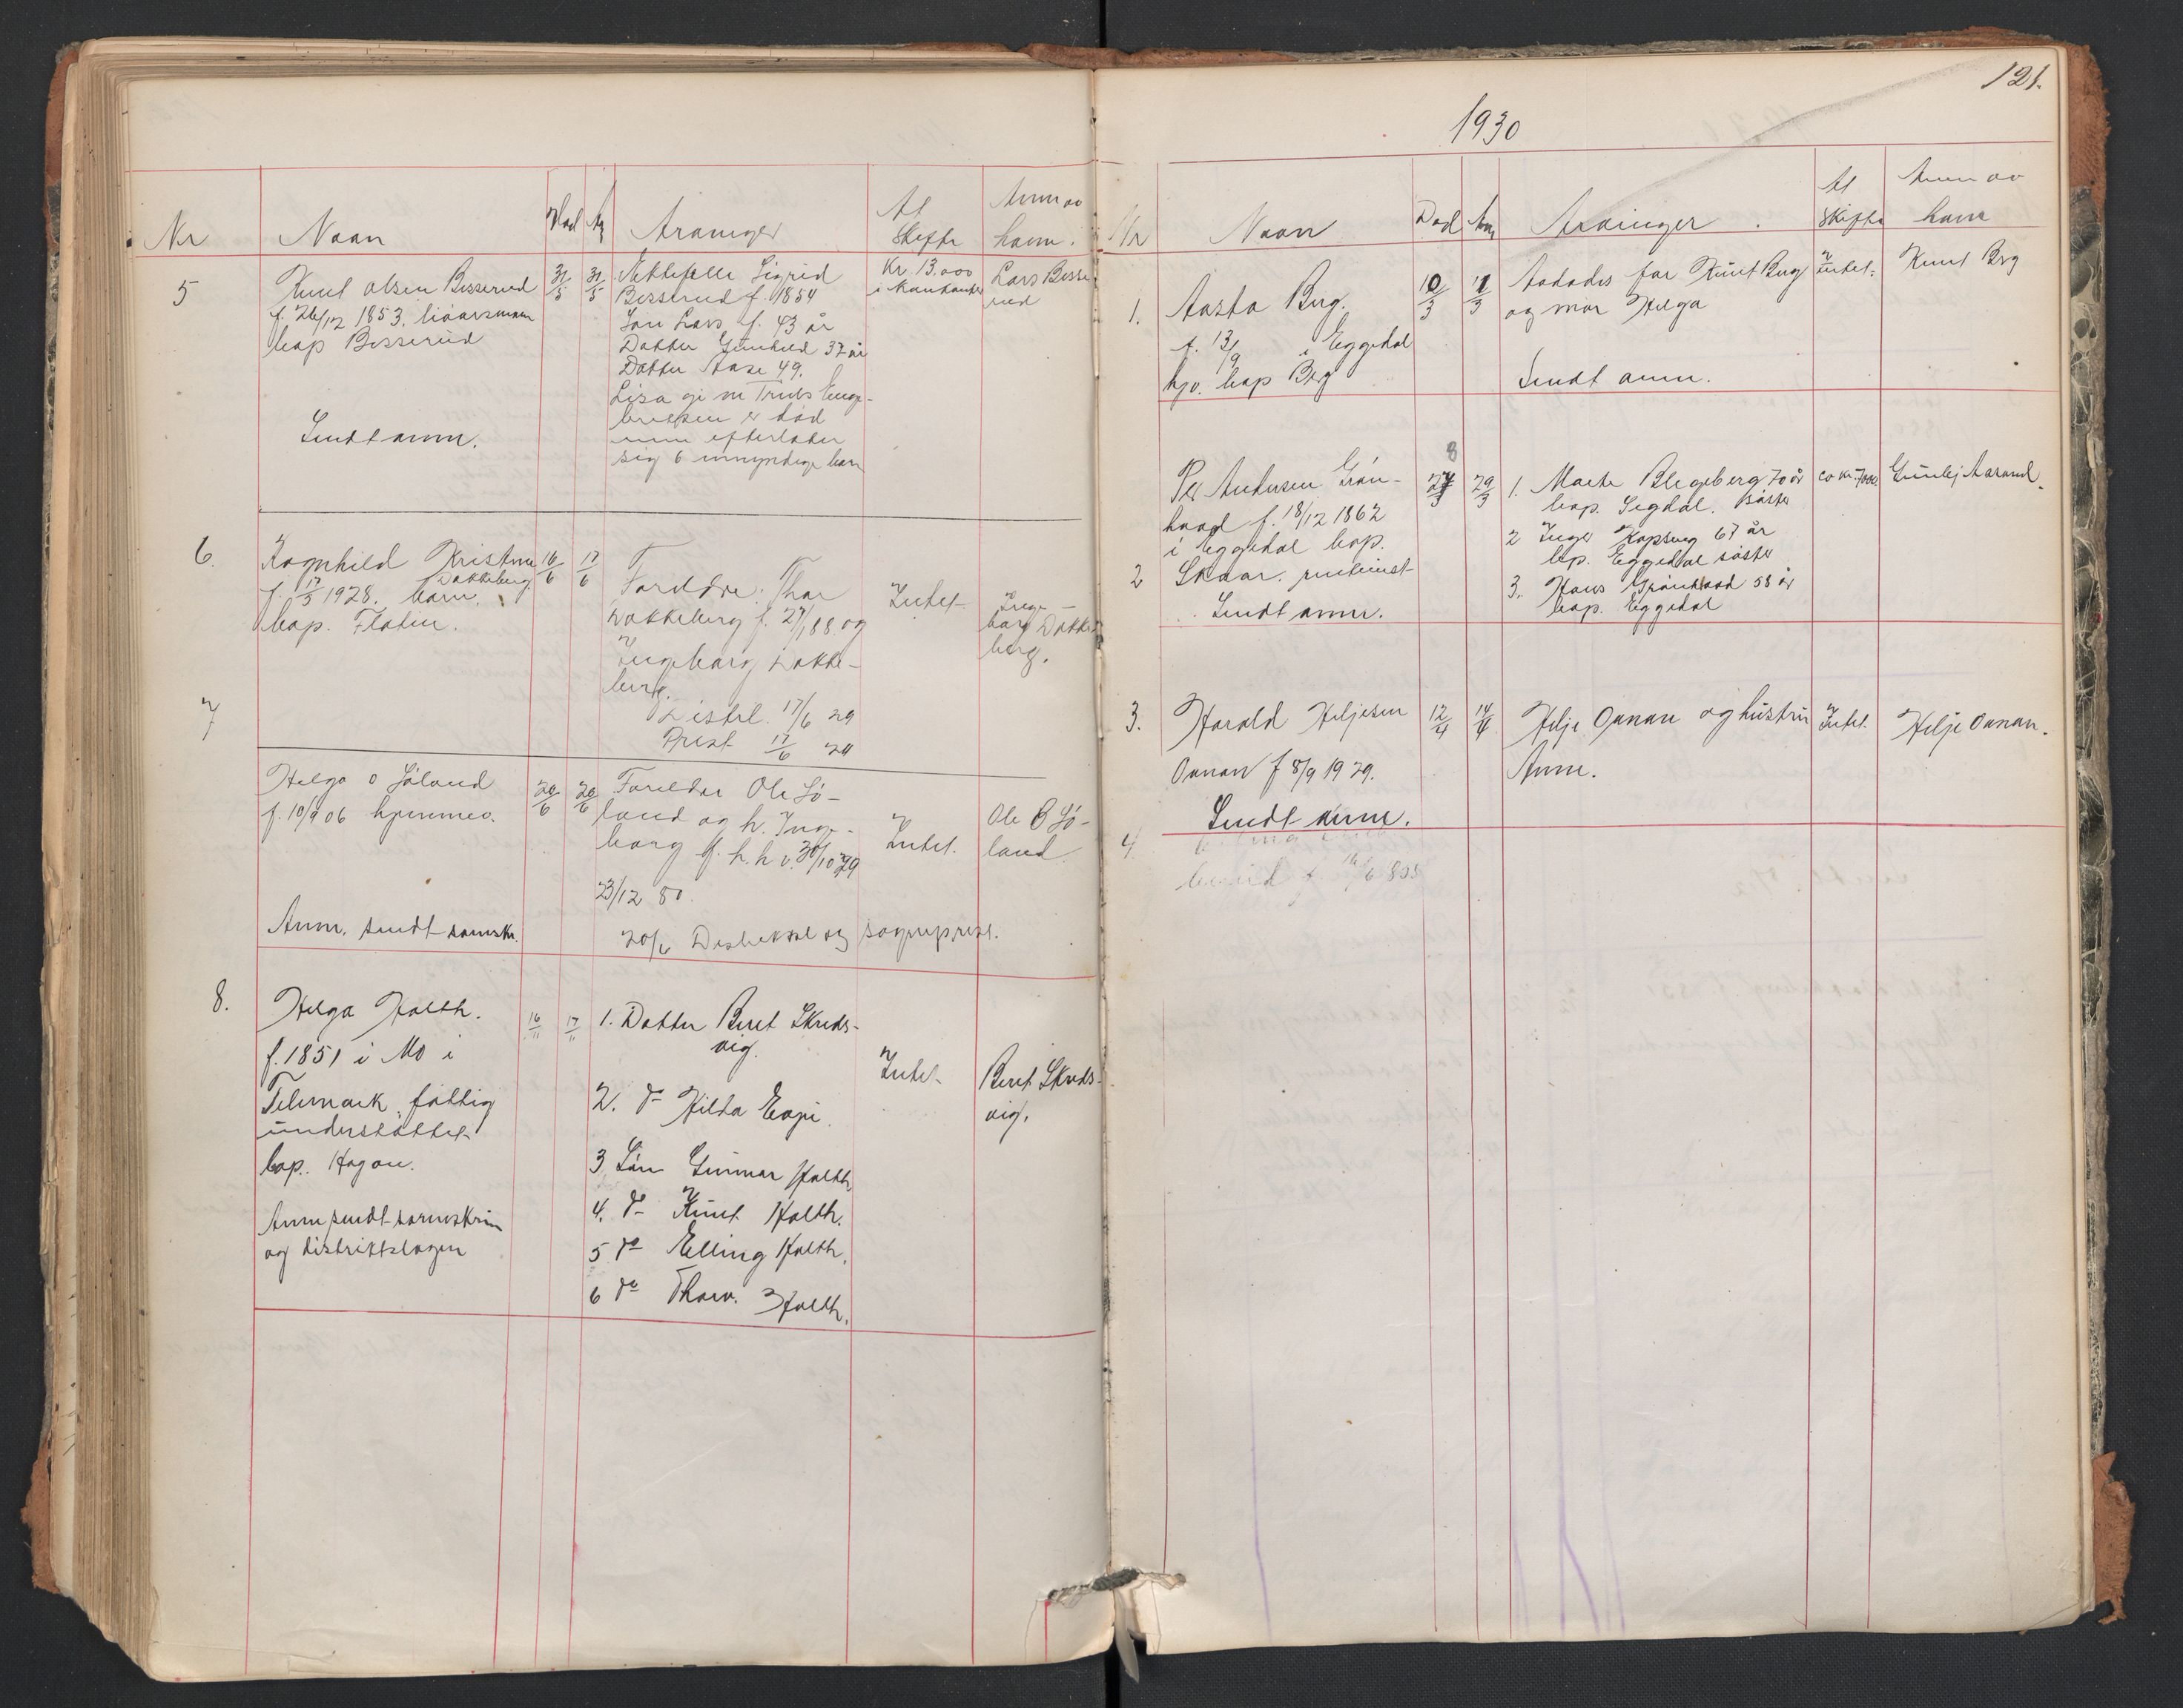 Nr
Navn
Død
Arvinger
Til
Skifte
Anm av
hvem.
5
Knut Olsen Bisserud
f. 26/12 1853.
bop Bisserud
Sendt anm.
31/5
31/5
Sigrid
Bisserud f. 1854
Søn Lars f. 43 år
Datter Gunhild 37 år
Datter Aase 49.
Lisa gi m Truls Enge-
bretsen er død
men efterlater
sig 6 umyndige barn
Kr. 13.000
i
Lars Besse
rud
6.
Ragnhild Kristine
Dokkeberg
f. 17/5 1928. barn.
bop. Flatin.
16/6
17/6
Foreldre: Thor
Dokkeberg f. 27/1 88. og
Ingeborg Dokke-
berg.
Distrl. 17/6 29
Prest 17/6 29
Intet
Inge-
borg Dokke
berg.
7
Helga O Søland
f. 10/9 06 hjemmev.
Anm. sendt sorenskr.
20/6
20/6
Foreldre Ole Sø-
land og h. Inge-
borg f. h. h v. 30/10 79
23/12 80.
20/6 og sogneprest.
Intet.
Ole O Sø-
land
8.
Helga Holth.
f. 1851 i Mo i
Telemark, fattig
understøttet
bop. Hagan.
Anm sendt sorenskrin
og distriktslagen
16/11
17/11
1. Datter Beret Skreds-
vig.
2. do Hilda Eopi.
3 Søn Gunnar Holth
4. do Knut Holth.
5 do Elling Holth.
6 do Thorv. Holth.
Intet
Beret Skreds-
vig.
121.
1930
Nr
Navn
Død
Anm
Arvinger
Til
Skifte
Anm av
hvem
1.
Aasta Berg.
f. 13/9 i Eggedal
hjv. bop Berg
10/3
11/3
Avdødes far Knut Berg
og mor Helga
Sendt anm.
Intet.
Knut Berg
2
Per Andersen Grøn-
hovd f. 18/12 1862
i Eggedal bop.
Skaar.
Sendt anm.
8
27/3
29/3
1. Marte Blegeberg 70 år
bop. Sigdal. søster
2 Inger Kopseng 67 år
bop. Eggedal søster
3. Hans Grønhovd 58 år
bop. Eggedal
ca kr. 7000
Gunlej Aasand.
3.
Harald Heljesen
Oanan f 8/9 1929.
Sendt anm.
12/4
14/4
Helje Oanan og hustru
Anne.
Intet.
Helje Oanan.
4